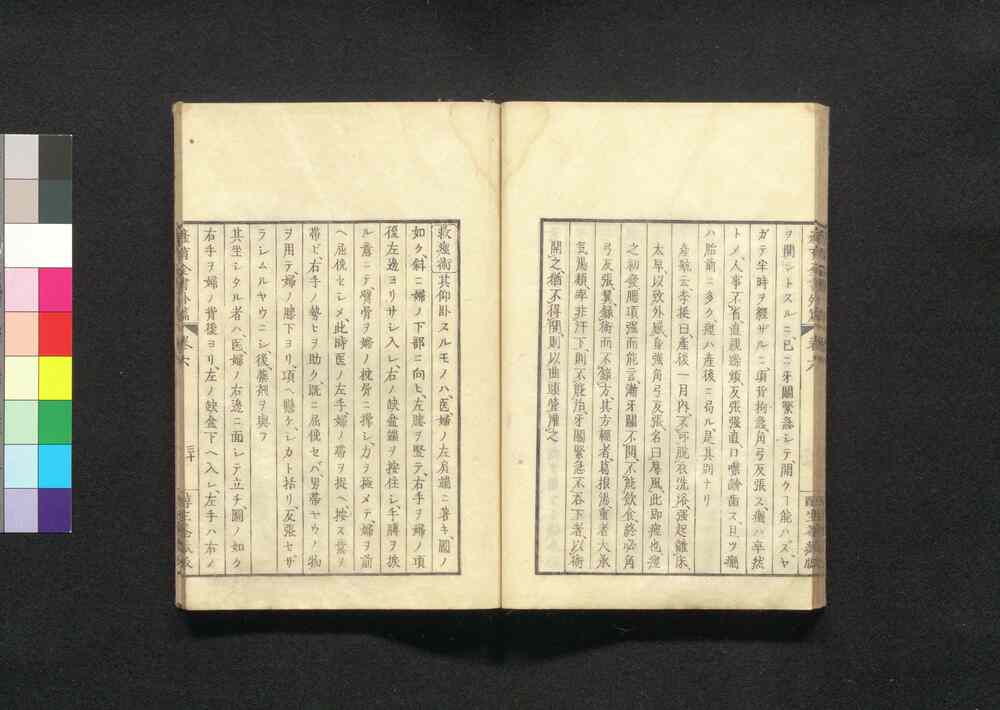 ヲ開ントスルニ、已ニ牙關緊急シテ、開クヿ能ハズ、ヤ
ガテ半時ヲ經ザルニ、項背拘急、角弓反張ス、癇ハ卒然
トメ、人事不省、直視 反張強直口噤齘歯ス、且ツ癇
ハ胎前ニ多ク、痙ハ産後ニ局ル、是其別ナリ
産論云李挺曰、産後一月內、不可脫衣洗浴、強起離床、
太早、以致外感、身強角弓反張、名曰蓐風、此即痙也、痙
之初發、腰項強而能言、漸牙關不開、不能飲食、終必角
弓反張、翼錄術而不錄方、其方輕者、葛根湯、重者大承
氣湯、 率非汗下、則不能治、牙關緊急不吞下者、以術
開之、猶不得開、則以曲頭管灌之
產育全書外篇 卷六
救痙術 其仰臥スルモノハ、医、婦ノ左肩端ニ著キ、圖ノ
如ク、斜ニ婦ノ下部ニ向ヒ、左膝ヲ竪テ、右手ヲ婦ノ項
後左邊ヨリサシ入レ、右ノ缺盆 ヲ按住シ、 膊ヲ挨
ル意ニテ、臂骨ヲ婦ノ枕骨ニ撑シ、力ヲ極メテ、婦ヲ前
ヘ屈俛セシメ、此時医ノ左手婦ノ帶ヲ捉ヘ、按ス 
帶ビ、右手ノ勢ヒヲ助ク、既ニ屈俛セバ、男帶ヤウノ物
ヲ用テ、婦ノ膝下ヨリ、項ヘ懸ケ、シカト括リ、反張セザ
ラシムルヤウニシ、後、藥劑ヲ與フ
其坐シタル者ハ、医、婦ノ右邊ニ面シテ立チ、圖ノ如ク
右手ヲ婦ノ背後ヨリ、左ノ缺盆下ヘ入レ、左手ハ右ノ
產育全書外篇 卷六 三十